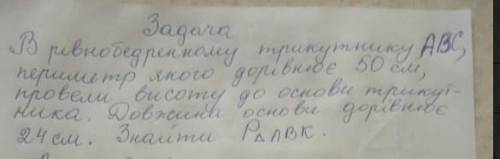 Задача
В рівнобедренному трикутнику АВС,
периметр якого дорівнює 50 см,
провели висоту до основи трикут-
ника. Довжина основи дорівнює
24 см. Знайти P△АВК.